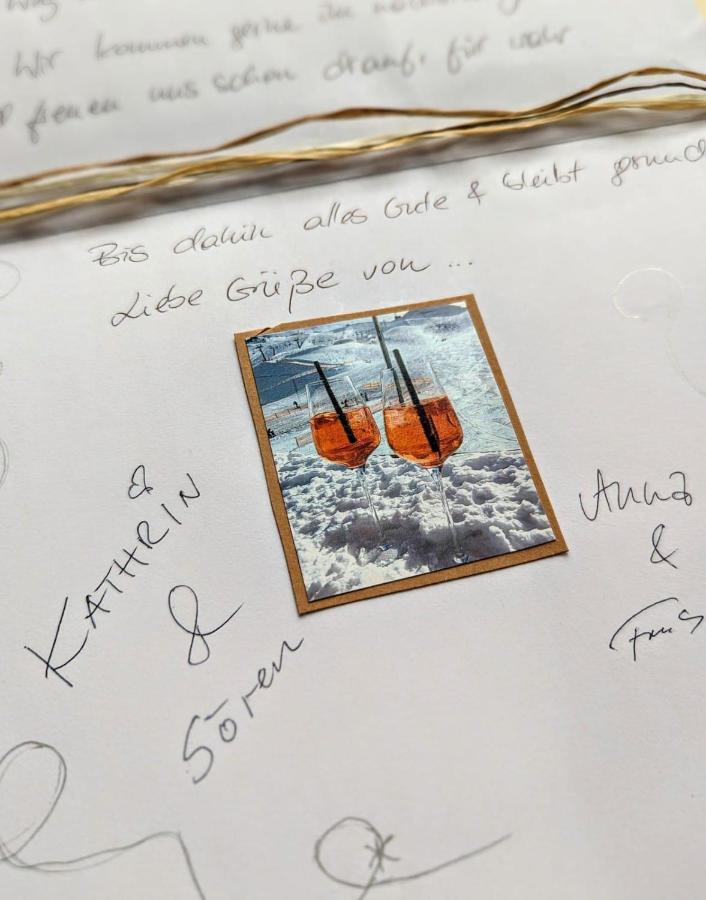 Wir kommen gerne im
freuen uns schon drauf, für wahr
Bis dahin alles Gute & bleibt gesund
Liebe Grüße von ...
&
KATHRIN
&
Sören
Anna
&